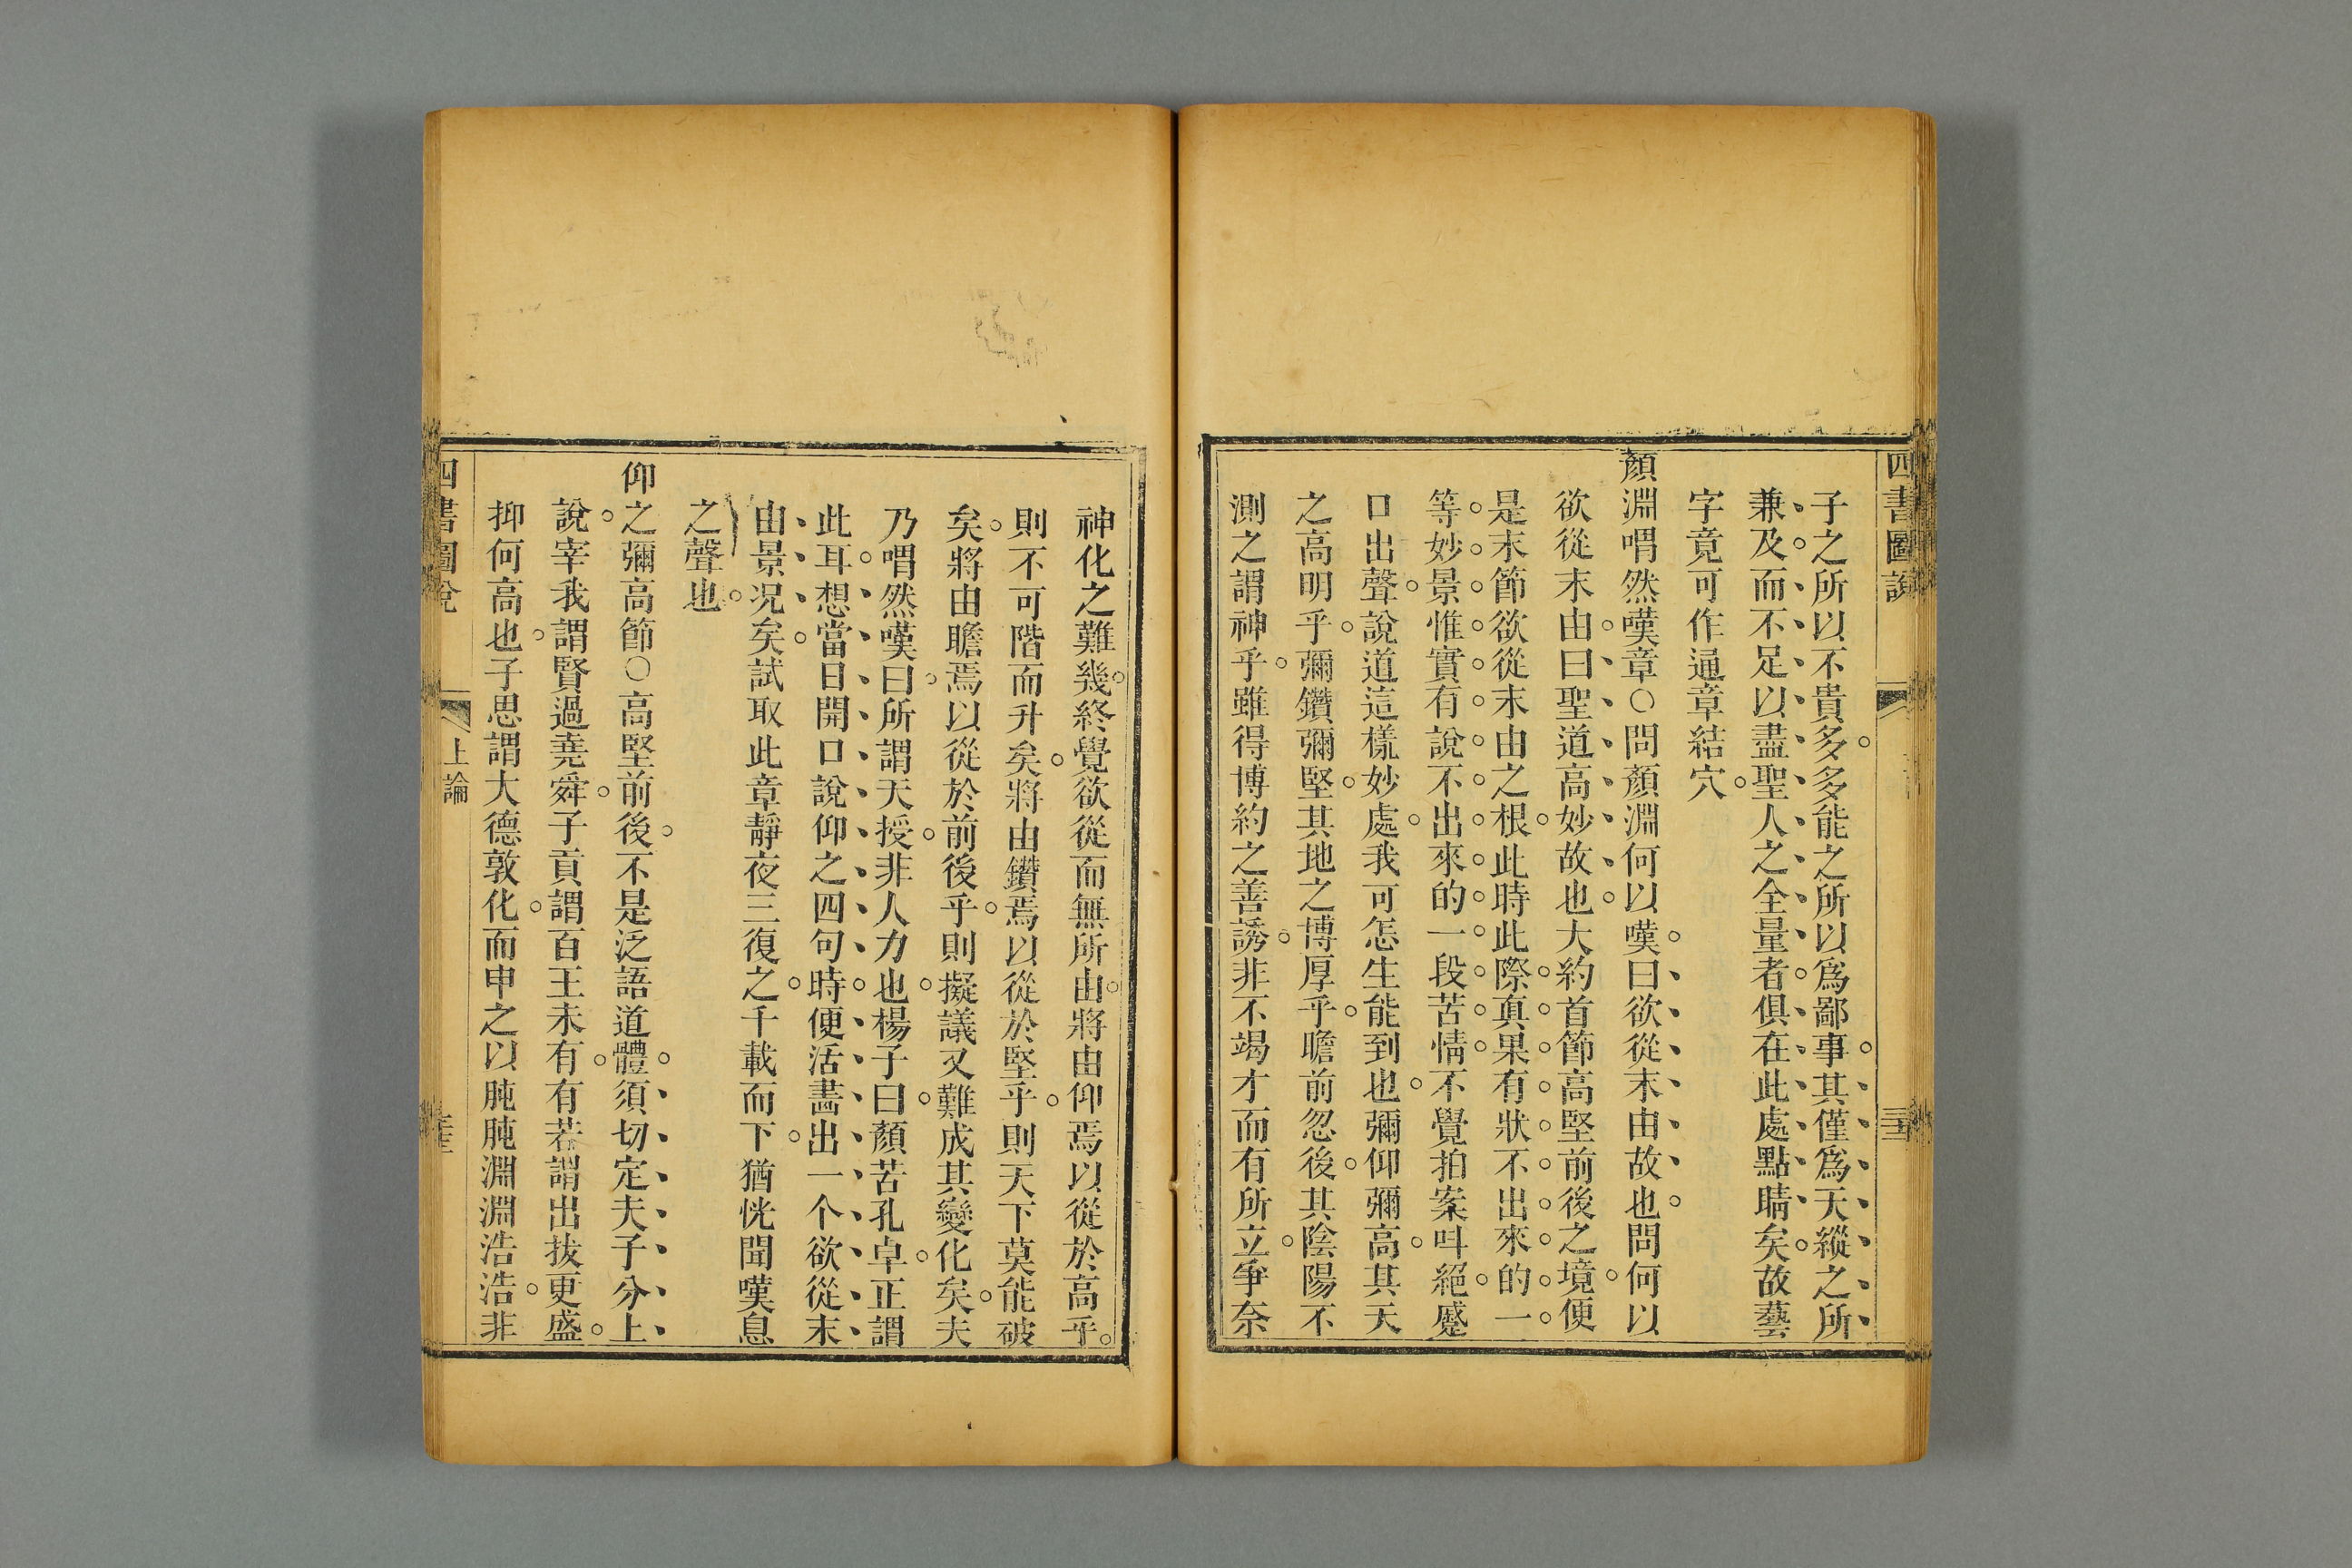 四書圖說
子之所以不貴多多能之所以爲鄙事其僅爲天縱之所
兼及而不足以盡聖人之全量者俱在此處點睛矣故藝
字竟可作通章結穴
顏淵喟然嘆章○問顏淵何以嘆曰欲從末由故也問何以
欲從末由曰聖道高妙故也大約首節高堅前後之境便
是末節欲從末由之根此時此際真果有狀不出來的一
等妙景惟實有說不出來的一段苦情不覺拍案呌絕蹙
口出聲說道這樣妙處我可怎生能到也彌仰彌高其天
之高明乎彌鑽彌堅其地之博厚乎瞻前忽後其陰陽不
測之謂神乎雖得博約之善誘非不竭才而有所立爭奈
神化之難幾終覺欲從而無所由將由仰焉以從於高乎
則不可階而升矣將由鑽焉以從於堅乎則天下莫能破
矣將由瞻焉以從於前後乎則擬議又難成其變化矣夫
乃喟然嘆曰所謂天授非人力也楊子曰顏苦孔卓正謂
此耳想當日開口說仰之四句時便活畵出一个欲從末
由景况矣試取此章靜夜三復之千載而下猶恍聞嘆息
之聲也
仰之彌高節○高堅前後不是泛語道體須切定夫子分上
說宰我謂賢過堯舜子貢謂百王未有有若謂出拔更盛
抑何高也子思謂大德敦化而申之以肫肫淵淵浩浩非
四書圖說
上論